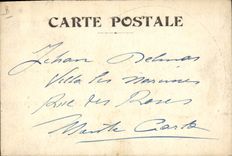 CARTE POSTALE
Jehan Delmas
Villa les
Rue des Roses
Monte Carlo